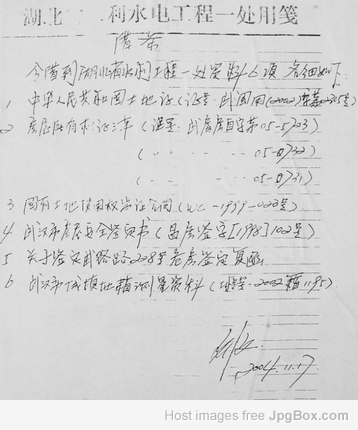 湖北 利水电工程一处用笺
借条
今借到湖北省水利工程一处资料6项 名细如下:
1、中华人民共和国土地证(证号:武国用(2002)字第
2 房屋所有权证三本(证号:武房房自字第05-5723)
( " " 05-0722)
( " " 05-0731)
3 国有土地使用权出让合同(WC-1999-022号)
4 武汉市房屋安全鉴定书(昌房鉴字[1998]102号)
5 关于鉴定武珞路228号危房鉴定复函
6 武汉市城镇地籍测量资料( 2002籍1195)
2004.11.17
Host images free JpgBox.com